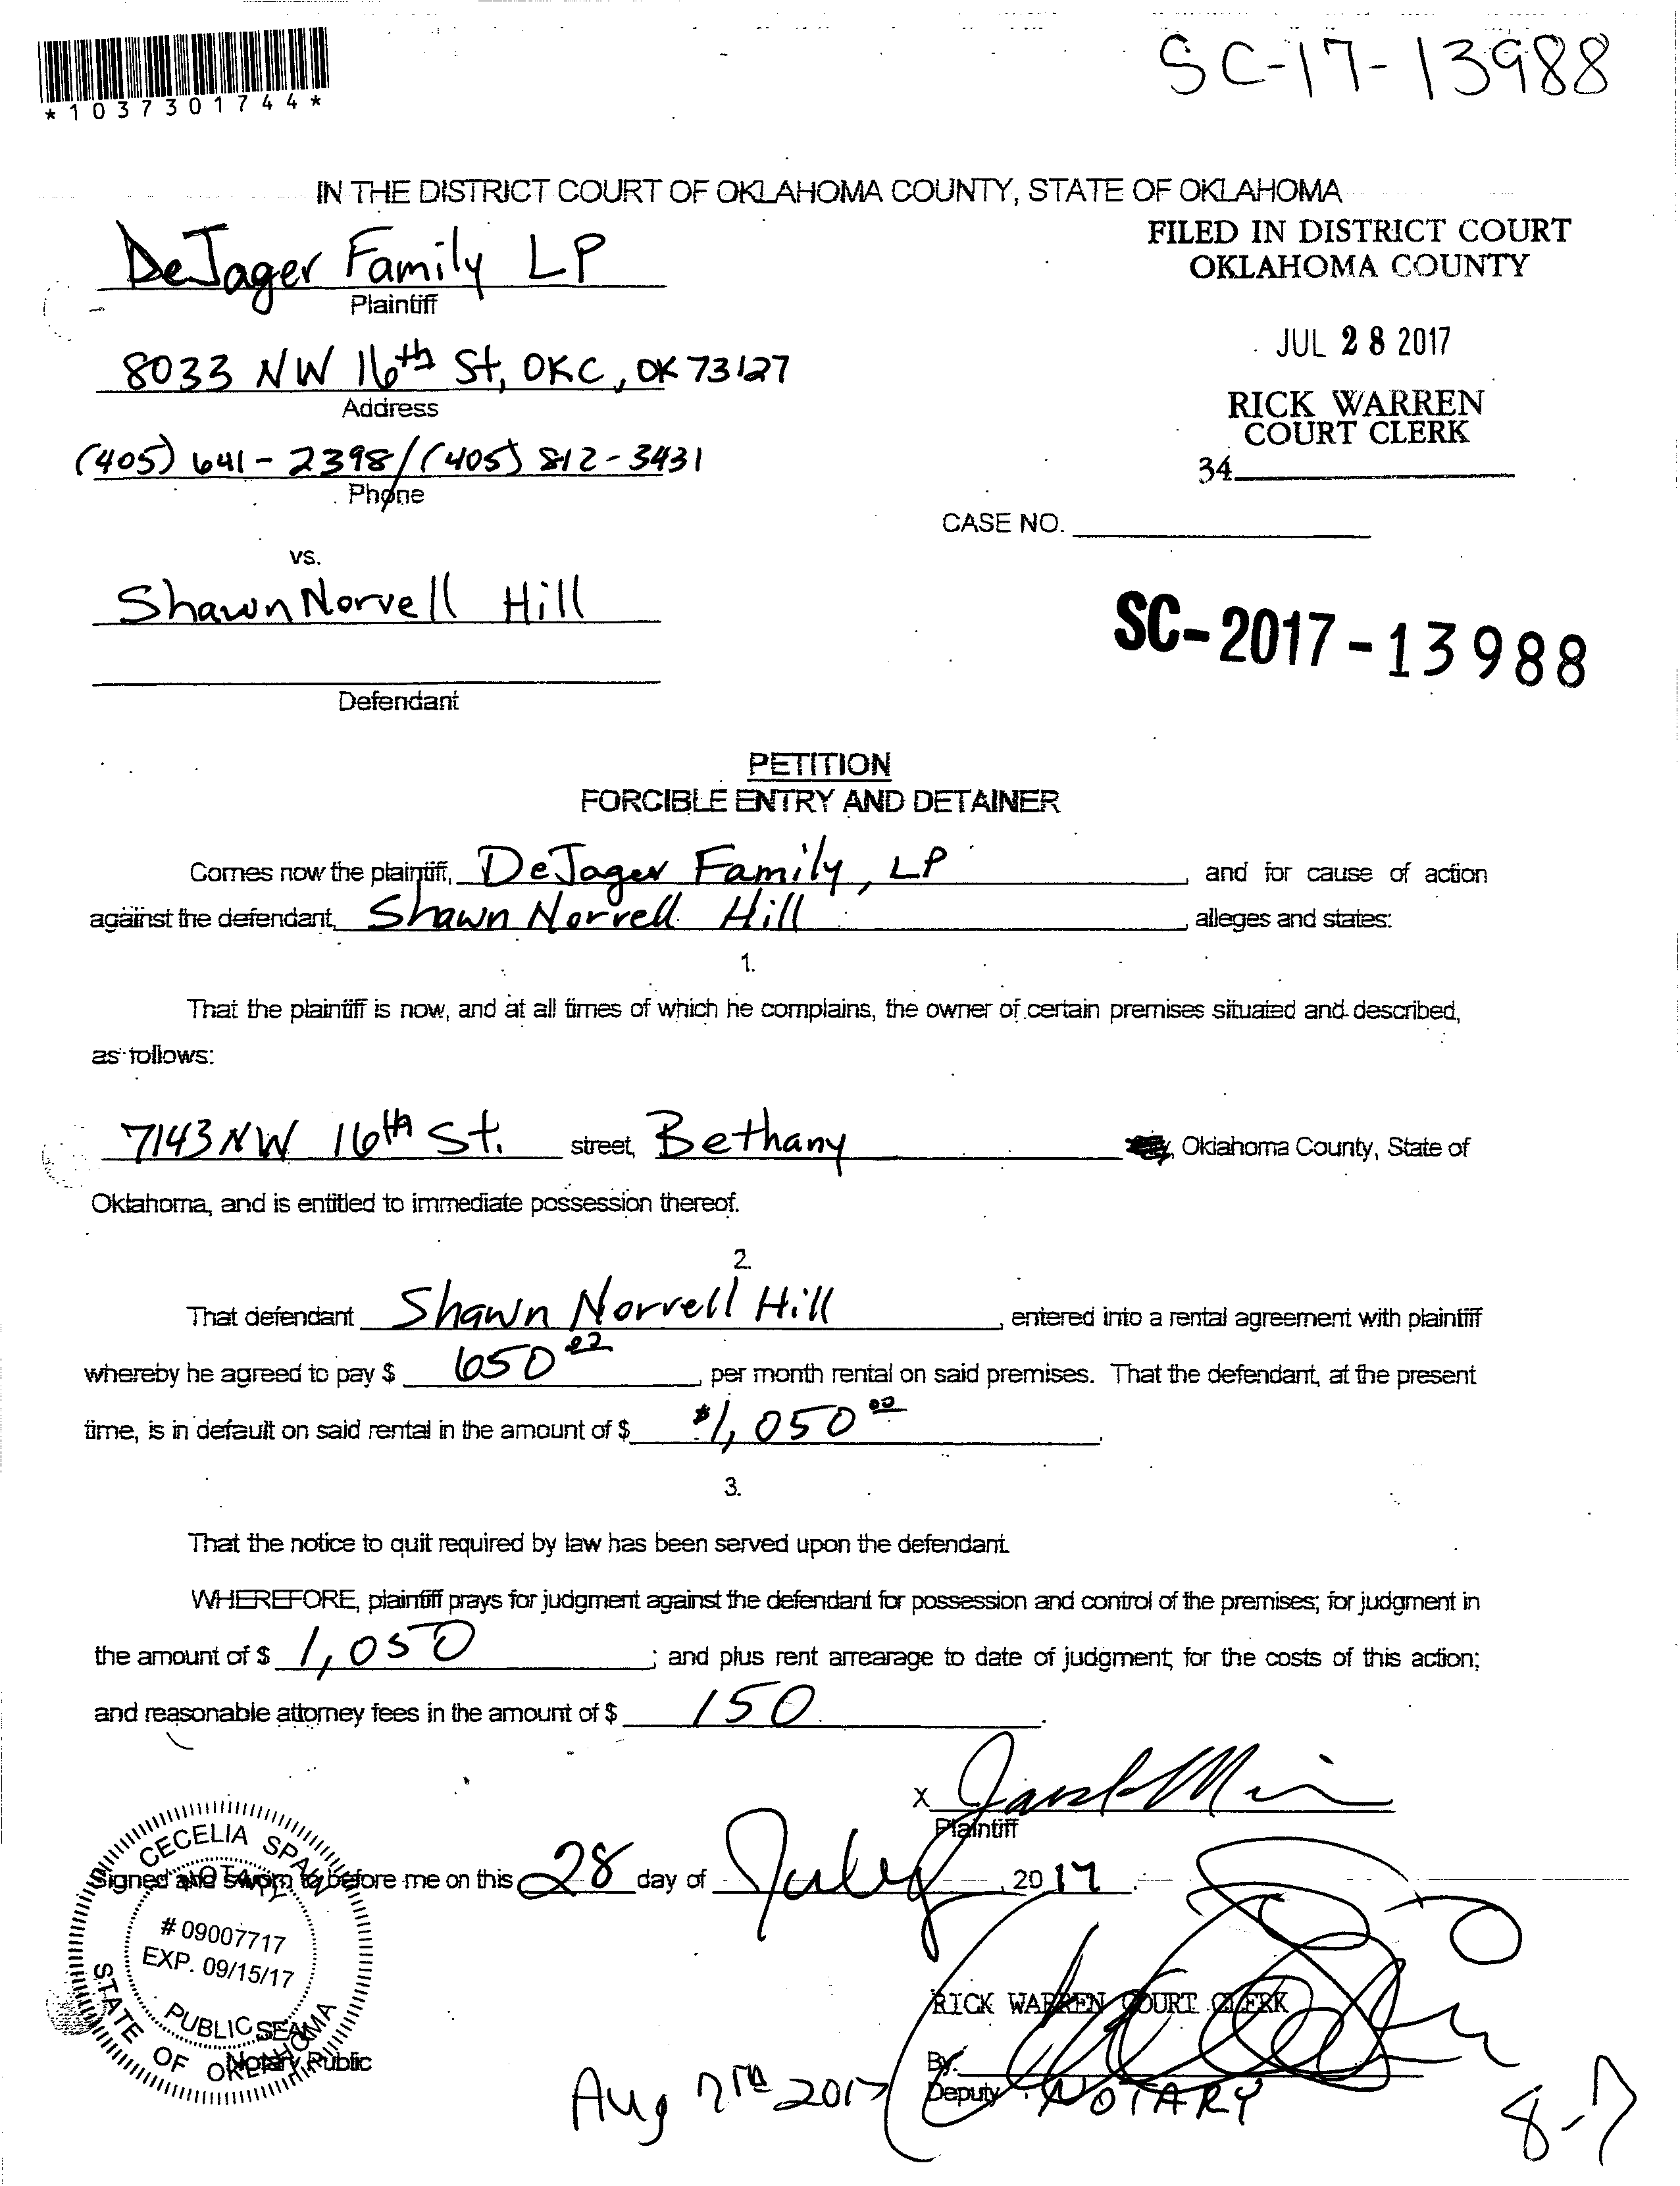 SC-17-13988
*1037301744*
IN THE DISTRICT COURT OF OKLAHOMA COUNTY, STATE OF OKLAHOMA
FILED IN DISTRICT COURT
OKLAHOMA COUNTY
DeJager Family LP
Plaintiff
JUL 28 2017
8033 NW 16th St, OKC, OK 73127
Address
RICK WARREN
COURT CLERK
(405) 641-2398/(405) 812-3431
Phone
34
CASE NO.
vs.
Shawn Norvell Hill
SC-2017-13988
Defendant
PETITION
FORCIBLE ENTRY AND DETAINER
Comes now the plaintiff, DeJager Family, LP and for cause of action
against the defendant, Shawn Norvell Hill, alleges and states:
1.
That the plaintiff is now, and at all times of which he complains, the owner of certain premises situated and described,
as follows:
7143 NW 16th St. street, Bethany, Oklahoma County, State of
Oklahoma, and is entitled to immediate possession thereof.
2.
That defendant Shawn Norvell Hill, entered into a rental agreement with plaintiff
whereby he agreed to pay $ 650 00, per month rental on said premises. That the defendant, at the present
time, is in default on said rental in the amount of $ $1,050 00.
3.
That the notice to quit required by law has been served upon the defendant.
WHEREFORE, plaintiff prays for judgment against the defendant for possession and control of the premises; for judgment in
the amount of $ 1,050; and plus rent arrearage to date of judgment; for the costs of this action;
and reasonable attorney fees in the amount of $ 150.
X
Plaintiff
Signed and sworn to before me on this 28 day of July, 2017.
CECELIA SPAIN
NOTARY
# 09007717
EXP. 09/15/17
PUBLIC
STATE OF OKLAHOMA
SEAL
Notary Public
RICK WARREN COURT CLERK
By:
Deputy NOTARY
Aug 7th 2017
8-7